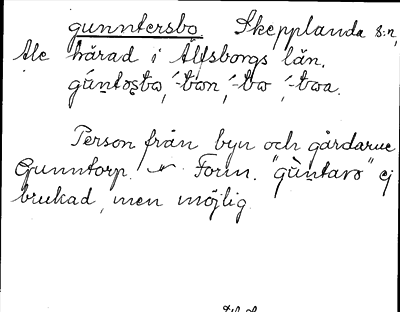 gunntersbo Skepplanda s:n,
Ale härad i Älfsborgs län.
gúntəsbo, ´-bon, ´-bo, ´-boa.
Person från byn och gårdarne
Gunntorp. Form. "gùntaro" ej
brukad, men möjlig.